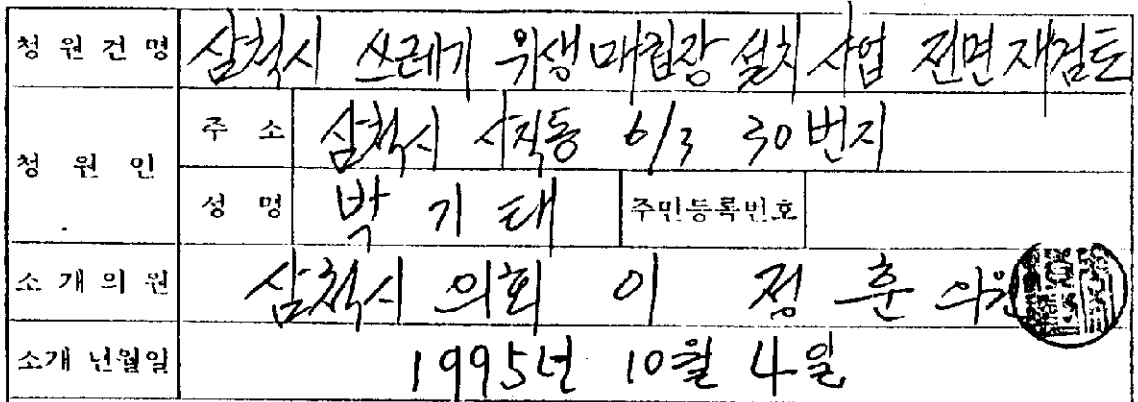 청원건명 삼척시 쓰레기 위생매립장 설치 사업 전면재검토
청원인
주소 삼척시 사직동 6/3 30번지
성명 박기태 주민등록번호
소개의원 삼척시 의회 이 정 훈 의원
소개 년월일 1995년 10월 4일